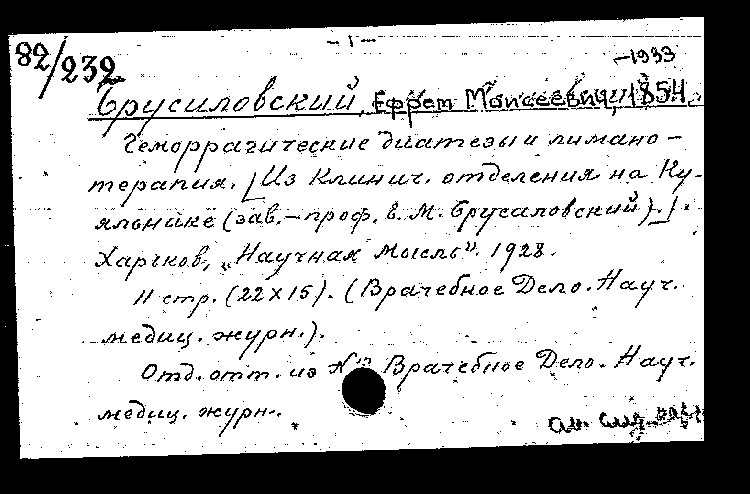 82/232
– 1 –
–1933
Брусиловский, Ефрем Моисеевич, 1854
Геморрагические диатезы и лимано-
терапия. [Из Клинич. отделения на Ку-
яльнике (зав. – проф. Е. М. Брусиловский).].
Харьков, „Научная мысль". 1928.
11 стр. (22×15). (Врачебное Дело. Науч.
медиц. журн.).
Отд. отт. из Врачебное Дело. Науч.
медиц. журн.